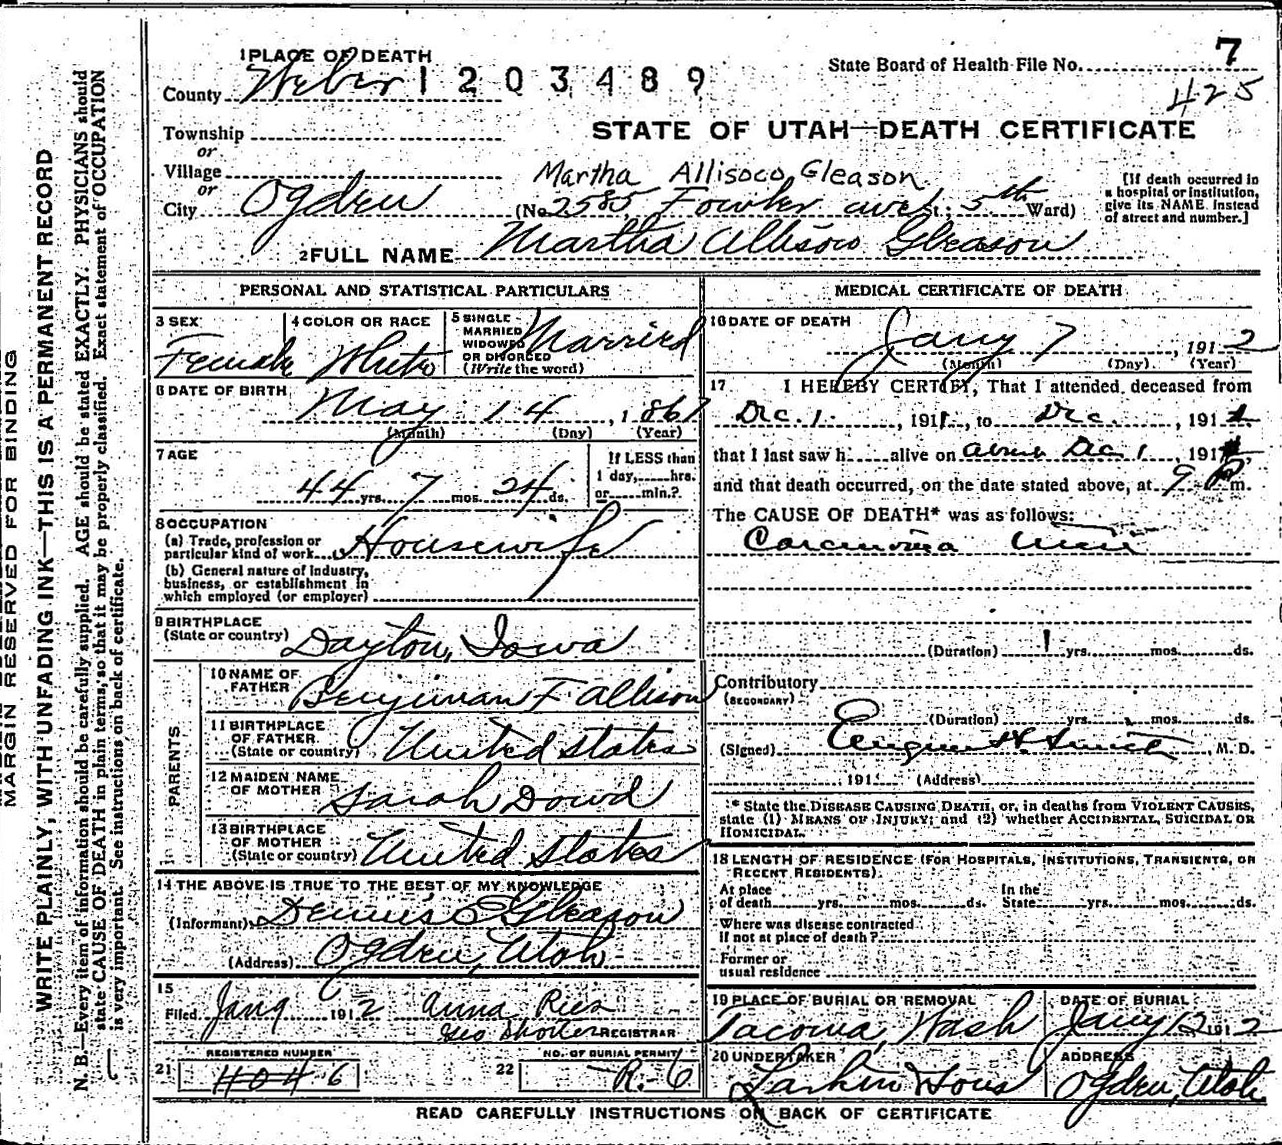 MARGIN RESERVED FOR BINDING
WRITE PLAINLY, WITH UNFADING INK—THIS IS A PERMANENT RECORD
N. B.—Every item of information should be carefully supplied. AGE should be stated EXACTLY. PHYSICIANS should
state CAUSE OF DEATH in plain terms, so that it may be properly classified. Exact statement of OCCUPATION
is very important. See instructions on back of certificate.
1 PLACE OF DEATH
County Weber 1203489
State Board of Health File No. 7
425
Township
or
Village
or
City Ogden
STATE OF UTAH—DEATH CERTIFICATE
Martha Allisoco Gleason
(No. 2585 Fowler ave St.; 5th Ward)
[If death occurred in
a hospital or institution,
give its NAME instead
of street and number.]
2 FULL NAME Martha Allison Gleason
PERSONAL AND STATISTICAL PARTICULARS
3 SEX Female
4 COLOR OR RACE White
5 SINGLE
MARRIED
WIDOWED
OR DIVORCED
(Write the word) Married
6 DATE OF BIRTH May 14, 1867
(Month) (Day) (Year)
7 AGE 44 yrs. 7 mos. 24 ds.
If LESS than
1 day, hrs.
or min.?
8 OCCUPATION
(a) Trade, profession or
particular kind of work Housewife
(b) General nature of industry,
business, or establishment in
which employed (or employer)
9 BIRTHPLACE
(State or country) Dayton, Iowa
PARENTS
10 NAME OF
FATHER Benjiman F Allison
11 BIRTHPLACE
OF FATHER
(State or country) United States
12 MAIDEN NAME
OF MOTHER Sarah Dowd
13 BIRTHPLACE
OF MOTHER
(State or country) United States
14 THE ABOVE IS TRUE TO THE BEST OF MY KNOWLEDGE
(Informant) Dennis E Gleason
(Address) Ogden, Utah
15
Filed Jany 1912 Anna Ries
Geo Shorten REGISTRAR
21 REGISTERED NUMBER 4046
22 NO. OF BURIAL PERMIT R-6
MEDICAL CERTIFICATE OF DEATH
16 DATE OF DEATH
Jany 7, 1912
(Month) (Day) (Year)
17 I HEREBY CERTIFY, That I attended deceased from
Dec. 1, 1911, to Dec., 191
that I last saw h alive on about Dec. 1, 191
and that death occurred, on the date stated above, at 9 P m.
The CAUSE OF DEATH* was as follows:
Carcinoma
(Duration) 1 yrs. mos. ds.
Contributory
(SECONDARY)
(Duration) yrs. mos. ds.
(Signed) Eugene H. Smith, M. D.
191 (Address)
* State the DISEASE CAUSING DEATH, or, in deaths from VIOLENT CAUSES,
state (1) MEANS OF INJURY; and (2) whether ACCIDENTAL, SUICIDAL OR
HOMICIDAL.
18 LENGTH OF RESIDENCE (FOR HOSPITALS, INSTITUTIONS, TRANSIENTS, OR
RECENT RESIDENTS).
At place
of death yrs. mos. ds.
In the
State yrs. mos. ds.
Where was disease contracted
if not at place of death?
Former or
usual residence
19 PLACE OF BURIAL OR REMOVAL
Tacoma, Wash
DATE OF BURIAL
Jany 12 1912
20 UNDERTAKER
Larkin & Sons
ADDRESS
Ogden, Utah
READ CAREFULLY INSTRUCTIONS ON BACK OF CERTIFICATE